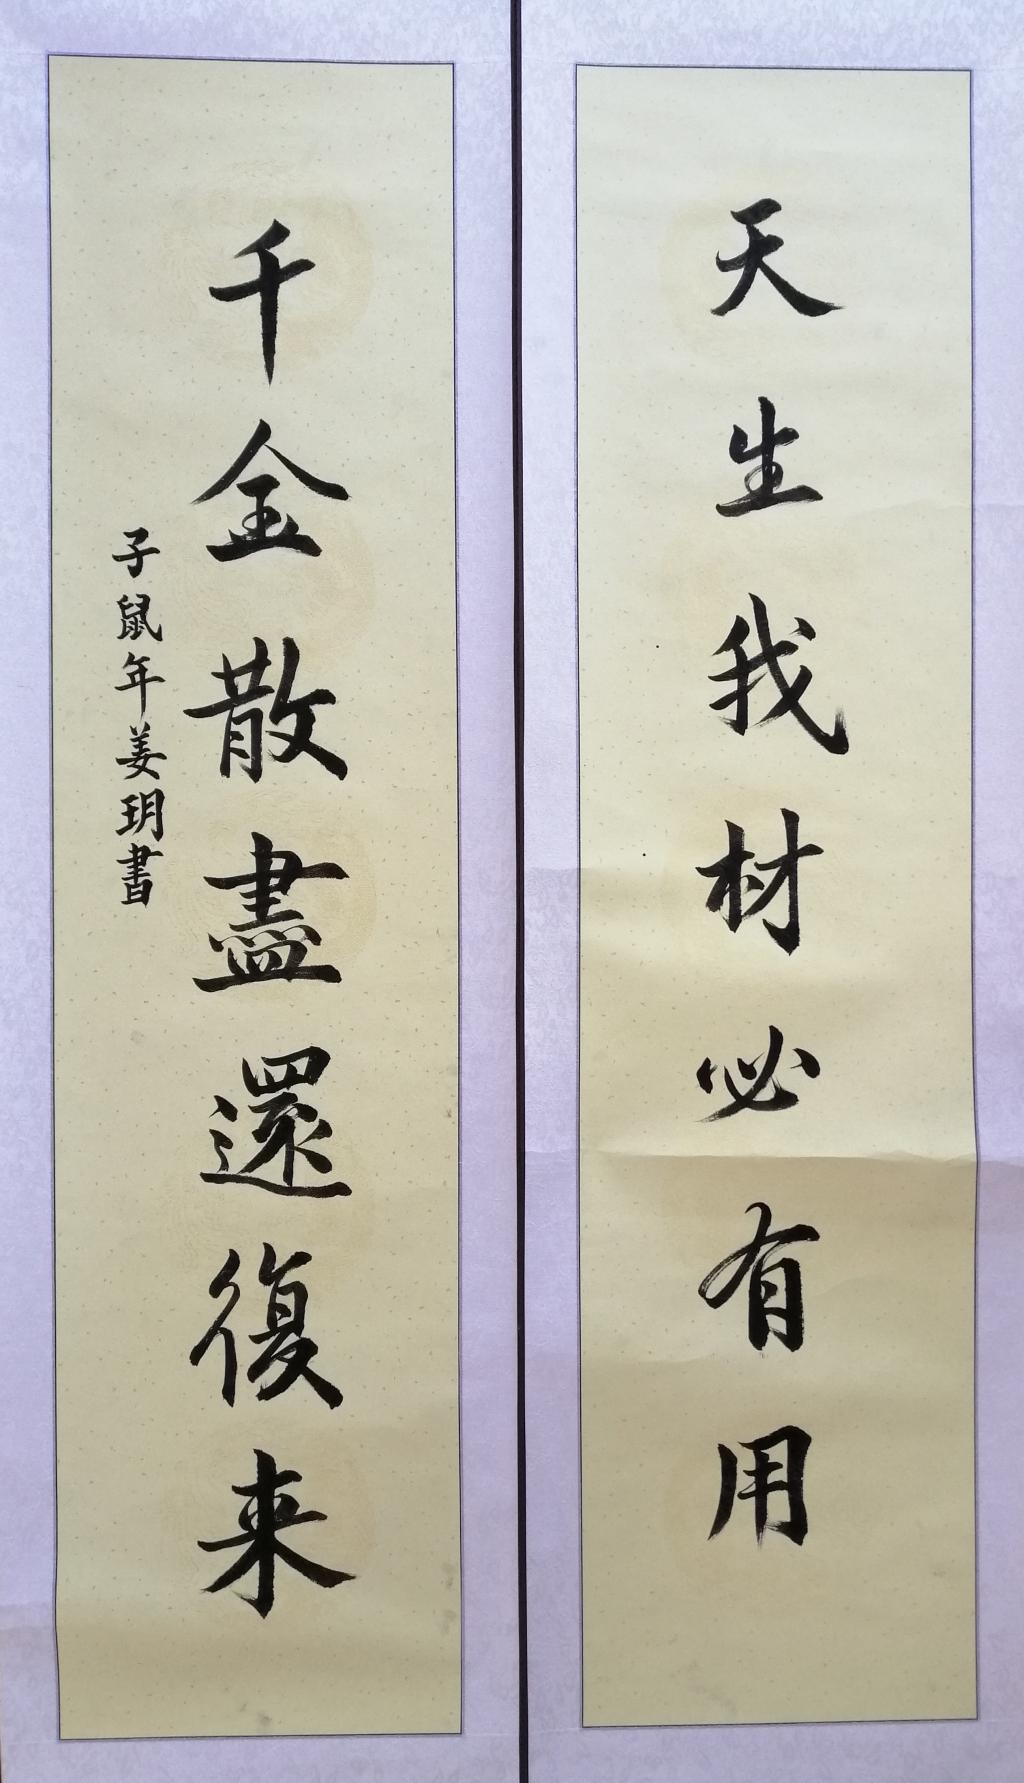 天生我材必有用
千金散盡還復来
子鼠年姜玥書